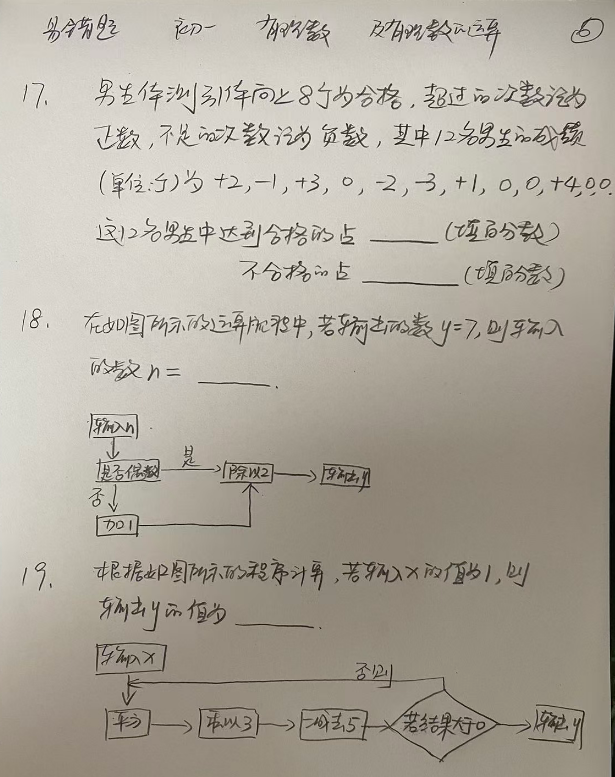 易错题 初一 有理数 及有理数的运算 ⑥
17. 男生体测引体向上8个为合格,超过的次数记为
正数,不足的次数记为负数,其中12名男生的成绩
(单位:个)为 +2,-1,+3,0,-2,-3,+1,0,0,+4,0,0.
这12名男生中达到合格的占 ______ (填百分数)
不合格的占 ______ (填百分数)
18. 在如图所示的运算流程中,若输出的数y=7,则输入
的数n= ______.
输入n
是否偶数 是 除以2 输出y
否
加1
19. 根据如图所示的程序计算,若输入x的值为1,则
输出y的值为 ______.
输入x
否则
平方 乘以3 减去5 若结果大于0 输出y